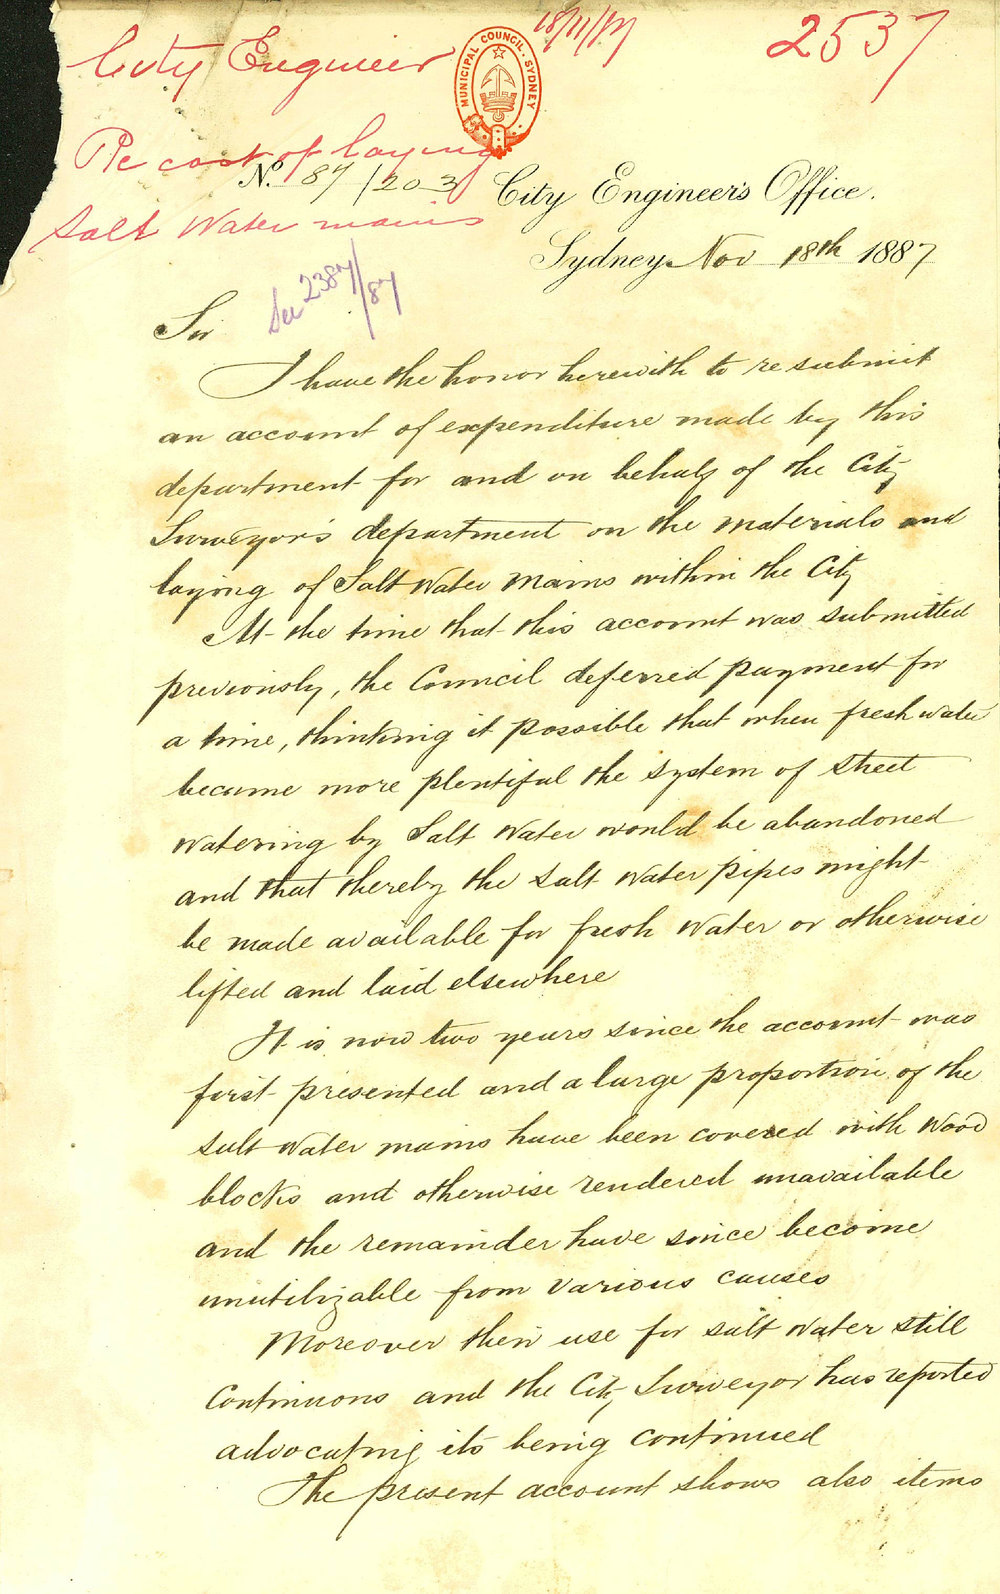 18/11/87
2537
City Engineer
MUNICIPAL COUNCIL · SYDNEY
Re cost of laying
No. 87/203 City Engineer's Office.
Salt Water mains
Sydney Nov 18th 1887
See 2387/87
Sir
I have the honor herewith to re submit
an account of expenditure made by this
department for and on behalf of the City
Surveyor's department on the materials and
laying of Salt Water Mains within the City
At the time that this account was submitted
previously, the Council deferred payment for
a time, thinking it possible that when fresh water
became more plentiful the system of street
watering by Salt Water would be abandoned
and that thereby the salt water pipes might
be made available for fresh water or otherwise
lifted and laid elsewhere
It is now two years since the account was
first presented and a large proportion of the
salt water mains have been covered with wood
blocks and otherwise rendered unavailable
and the remainder have since become
unutilizable from various causes
Moreover their use for salt water still
continuous and the City Surveyor has reported
advocating its being continued
The present account shows also items